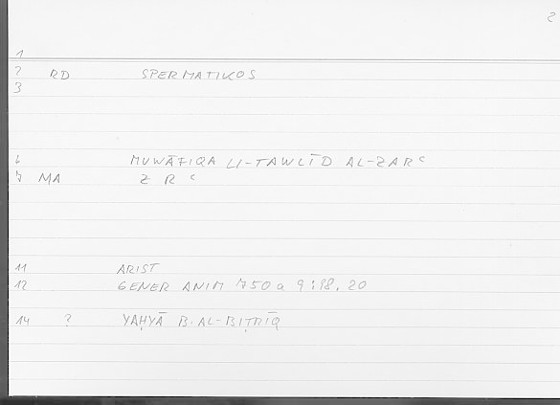 2
1
2 RD SPERMATIKOS
3
6 MUWĀFIQA LI-TAWLĪD AL-ZARʿ
7 MA Z R ʿ
11 ARIST
12 GENER ANIM 750a 9:18, 20
14 ? YAḤYĀ B. AL-BIṬRĪQ